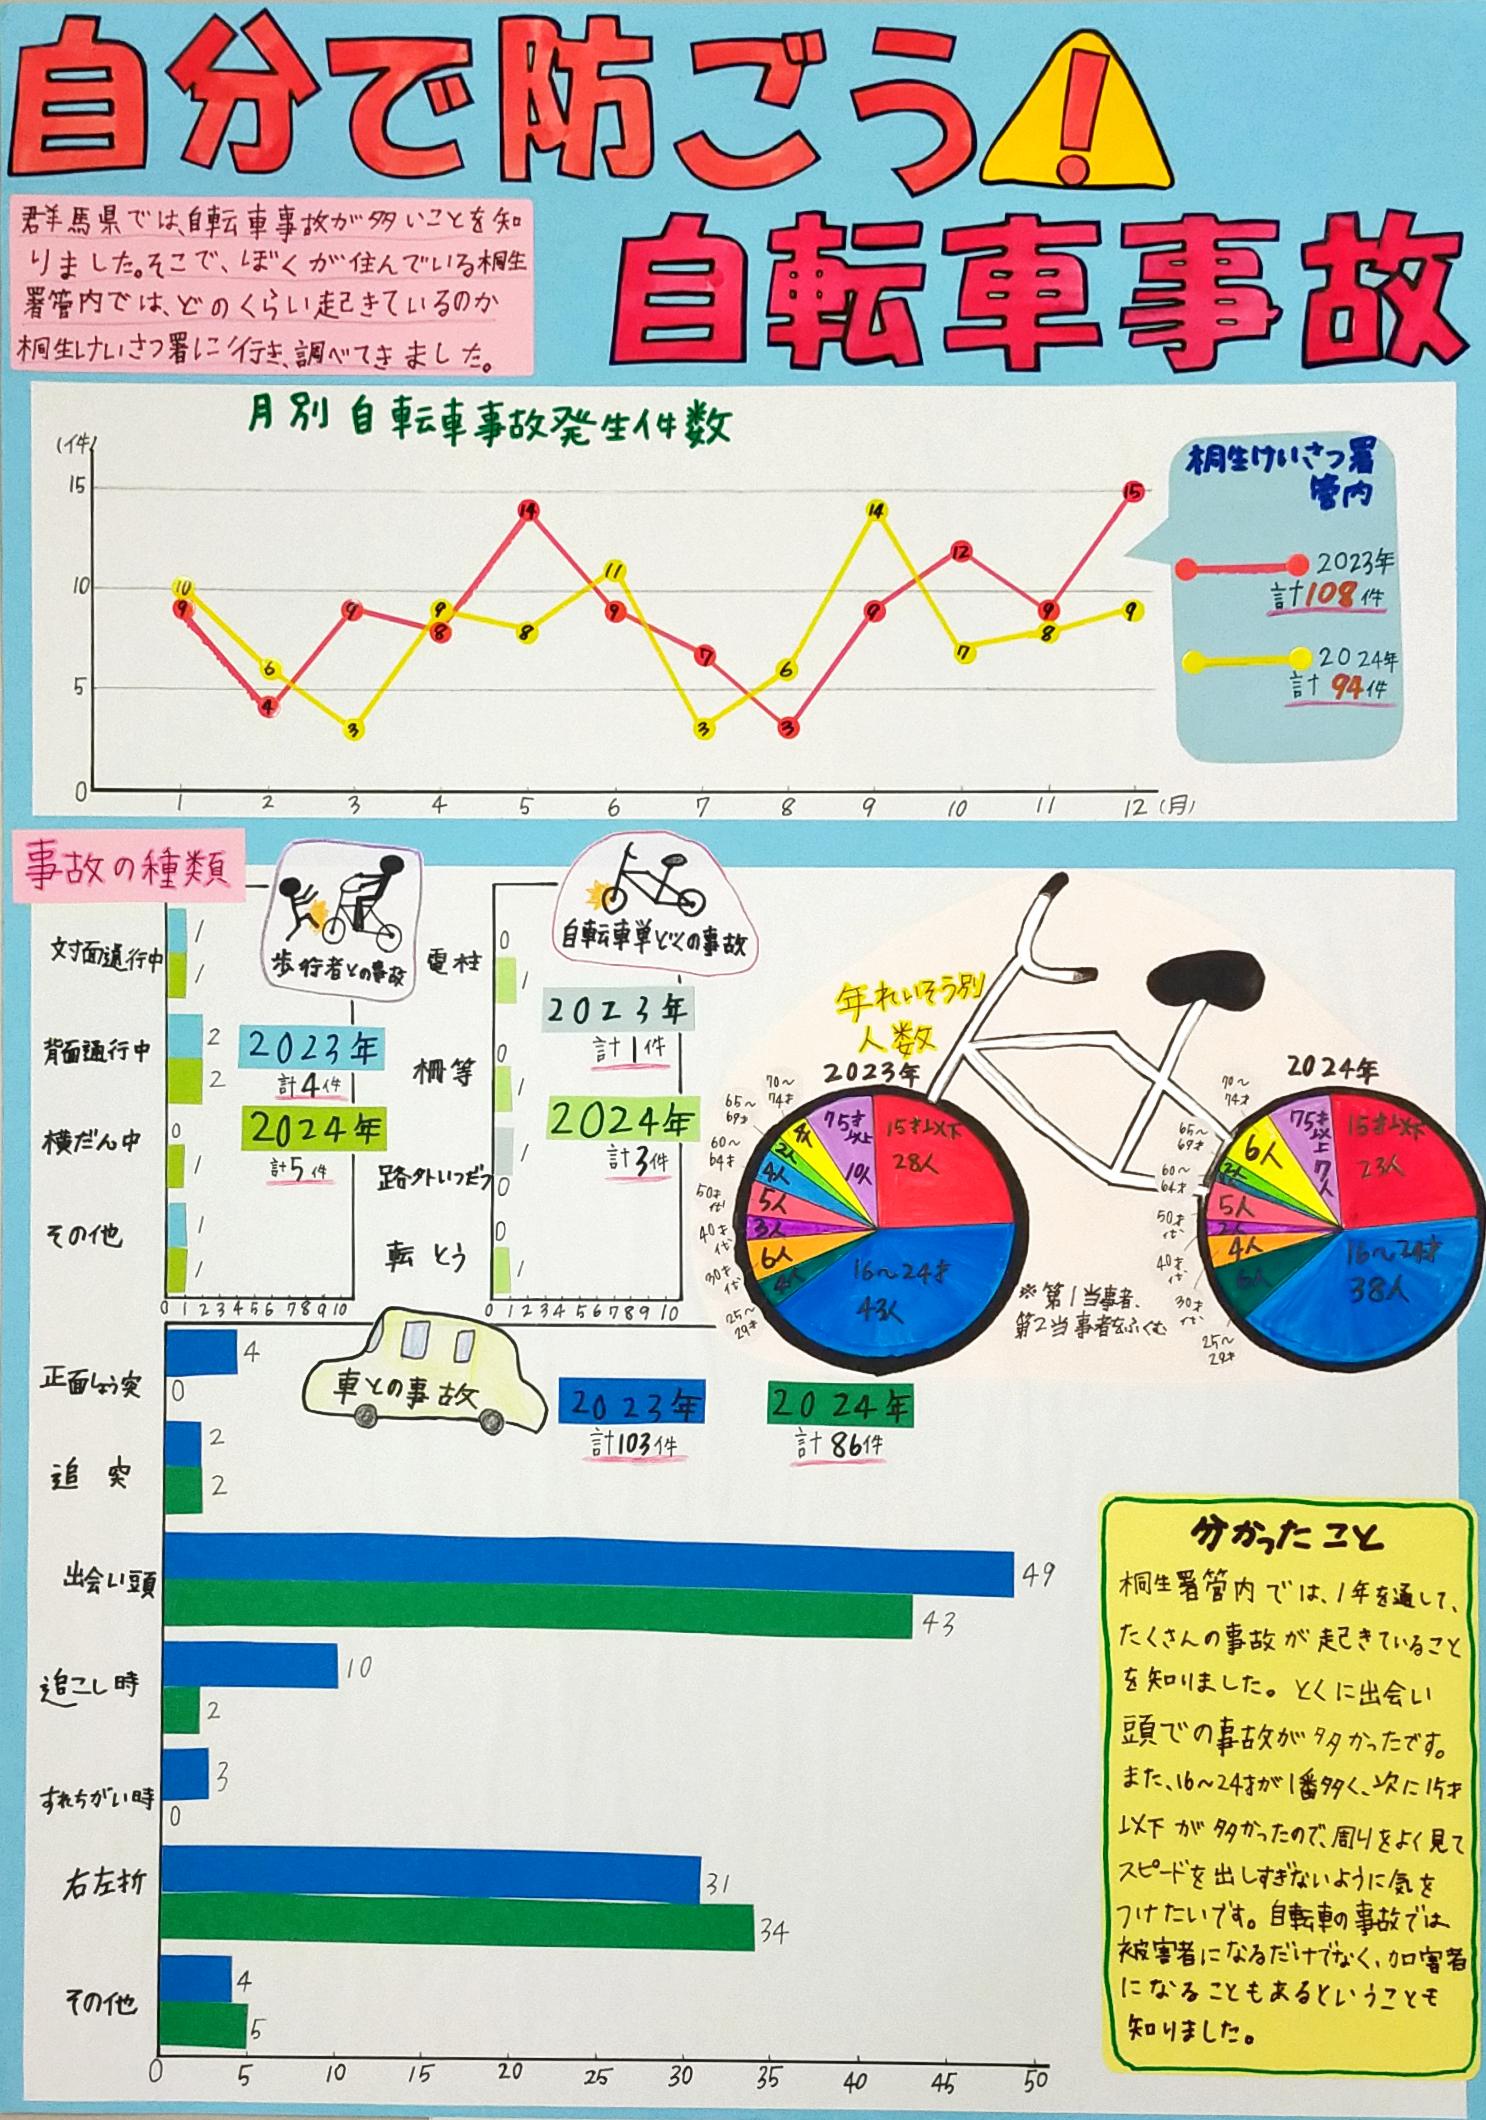 自分で防ごう!
自転車事故
群馬県では、自転車事故が多いことを知
りました。そこで、ぼくが住んでいる桐生
署管内では、どのくらい起きているのか
桐生けいさつ署に行き、調べてきました。
月別自転車事故発生件数
(件)
15
10
5
0
10
9
6
4
9
3
9
8
14
8
11
9
7
3
6
3
14
9
12
7
9
8
15
9
1 2 3 4 5 6 7 8 9 10 11 12 (月)
桐生けいさつ署
管内
2023年
計108件
2024年
計94件
事故の種類
歩行者との事故
対面通行中
1
1
背面通行中
2
2
横だん中
0
1
その他
1
1
2023年
計4件
2024年
計5件
0 1 2 3 4 5 6 7 8 9 10
自転車単どくの事故
電柱
0
1
柵等
0
1
路外いつだつ
1
0
転とう
0
1
2023年
計1件
2024年
計3件
0 1 2 3 4 5 6 7 8 9 10
年れいそう別
人数
2023年
15才以下
28人
16〜24才
43人
25〜
29才
4人
30才
代
6人
40才
代
3人
50才
代
5人
60〜
64才
4人
65〜
69才
2人
70〜
74才
4人
75才
以上
10人
2024年
15才以下
23人
16〜24才
38人
25〜
29才
6人
30才
代
4人
40才
代
2人
50才
代
5人
60〜
64才
65〜
69才
70〜
74才
6人
75才
以上
7人
※第1当事者、
第2当事者をふくむ
車との事故
2023年
計103件
2024年
計86件
正面しょう突
4
0
追突
2
2
出会い頭
49
43
追こし時
10
2
すれちがい時
3
0
右左折
31
34
その他
4
5
0 5 10 15 20 25 30 35 40 45 50
分かったこと
桐生署管内では、1年を通して、
たくさんの事故が起きていること
を知りました。とくに出会い
頭での事故が多かったです。
また、16〜24才が1番多く、次に15才
以下が多かったので、周りをよく見て
スピードを出しすぎないように気を
つけたいです。自転車の事故では
被害者になるだけでなく、加害者
になることもあるということも
知りました。